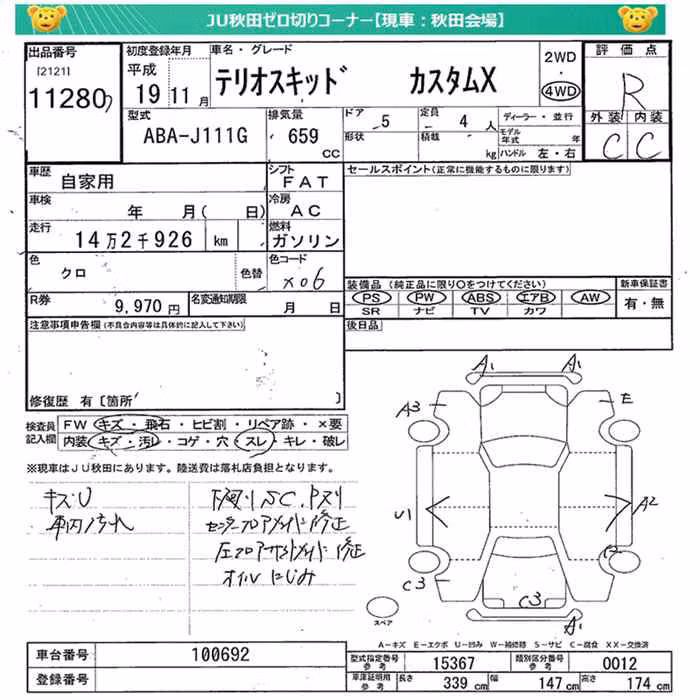 JU秋田ゼロ切りコーナー【現車：秋田会場】
出品番号
[2121]
11280
初度登録年月
平成
19 11 月
車名・グレード
テリオスキッド カスタムX
2WD
・
4WD
評価点
R
外装 内装
C C
型式
ABA-J111G
排気量
659
CC
ドア
5
形状
定員
4 人
積載
kg
ディーラー・並行
モデル年式 年
ハンドル 左・右
車歴
自家用
シフト
FAT
セールスポイント(正常に機能するものに限ります)
車検
年 月( 日)
冷房
AC
走行
14万2千926 km
燃料
ガソリン
色
クロ
色替
色コード
X06
装備品 (純正品に限り○をつけてください)
PS PW ABS エアB AW
SR ナビ TV カワ
新車保証書
有・無
R券
9,970 円
名変通知期限
月 日
後日品
注意事項申告欄(不具合内容等は具体的に記入して下さい)
修復歴 有〔箇所 〕
検査員記入欄
FW キズ・飛石・ヒビ割・リペア跡・×要
内装 キズ・汚レ・コゲ・穴・スレ・キレ・破レ
※現車はJU秋田にあります。陸送費は落札店負担となります。
キズU
車内汚れ
下廻りSC.Pヌリ
センターフロアメイド修正
左フロアサイドメイド修正
オイルにじみ
A1 A1
A3 E
U1 A2
C3 C3
A1
スペア
A-キズ E-エクボ U-凹み W-補修跡 S-サビ C-腐食 XX-交換済
車台番号
100692
登録番号
型式指定番号
参考
15367
類別区分番号
参考
0012
車庫証明用
参考
長さ
339 cm
幅
147 cm
高さ
174 cm